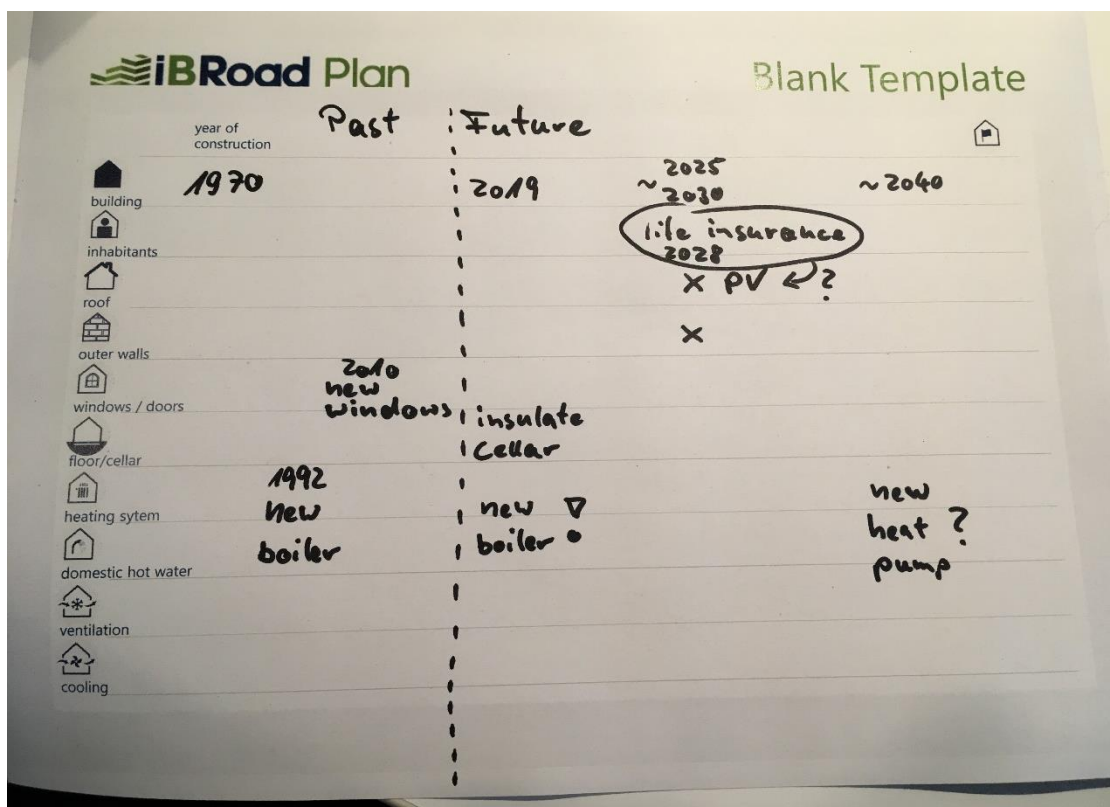 iBRoad Plan Blank Template
year of
construction
Past Future
building 1970 2019 ~ 2025
2030 ~ 2040
inhabitants life insurance
2028
roof X PV ?
outer walls X
windows / doors 2010
new
windows
floor/cellar insulate
cellar
heating sytem 1992
new
boiler
new
boiler !
new
heat ?
pump
domestic hot water
ventilation
cooling